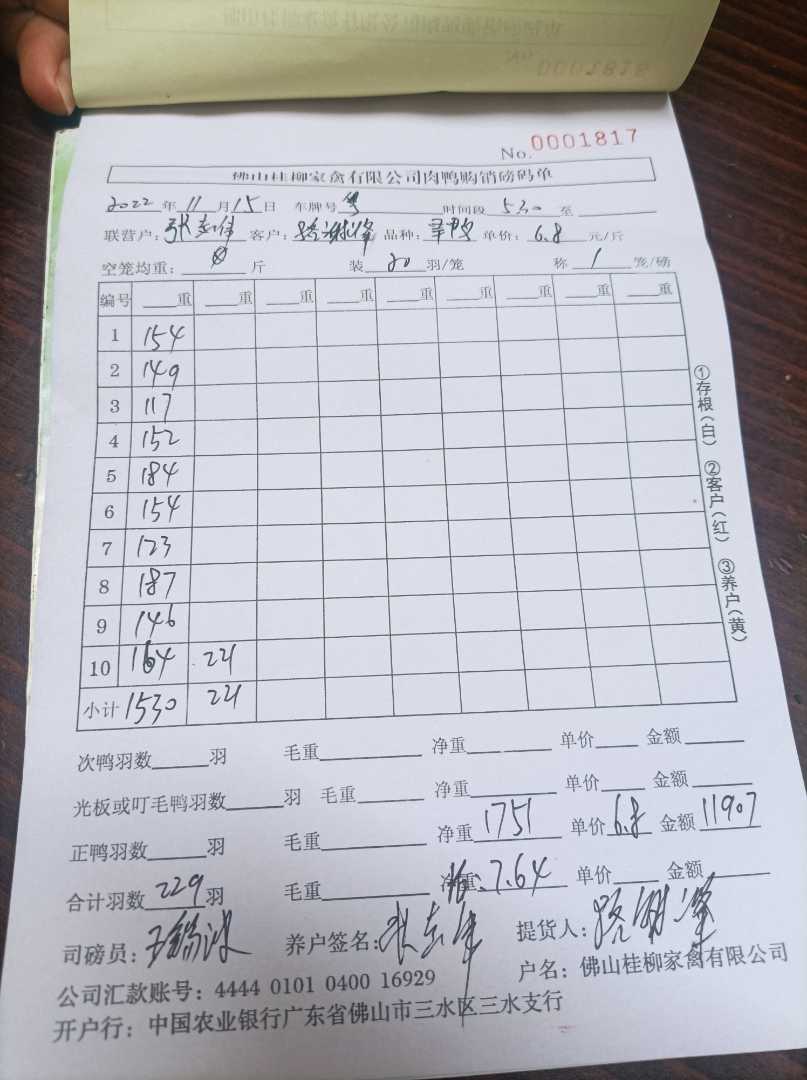 0001818
No. 0001817
佛山桂柳家禽有限公司肉鸭购销磅码单
2022年11月15日 车牌号 时间段 530 至
联营户: 张 客户: 品种: 单价: 6.8 元/斤
空笼均重: 0 斤 装 20 羽/笼 称 1 笼/磅
编号 重 重 重 重 重 重 重 重 重
1 154
2 149
3 117
4 152
5 184
6 154
7 123
8 187
9 146
10 164 221
小计 1530 221
①存根(白) ②客户(红) ③养户(黄)
次鸭羽数 羽 毛重 净重 单价 金额
光板或叮毛鸭羽数 羽 毛重 净重 单价 金额
正鸭羽数 羽 毛重 净重 1751 单价 6.8 金额 11907
合计羽数 229 羽 毛重 净重 7.64 单价 金额
司磅员: 养户签名: 张 提货人:
公司汇款账号: 4444 0101 0400 16929 户名: 佛山桂柳家禽有限公司
开户行: 中国农业银行广东省佛山市三水区三水支行